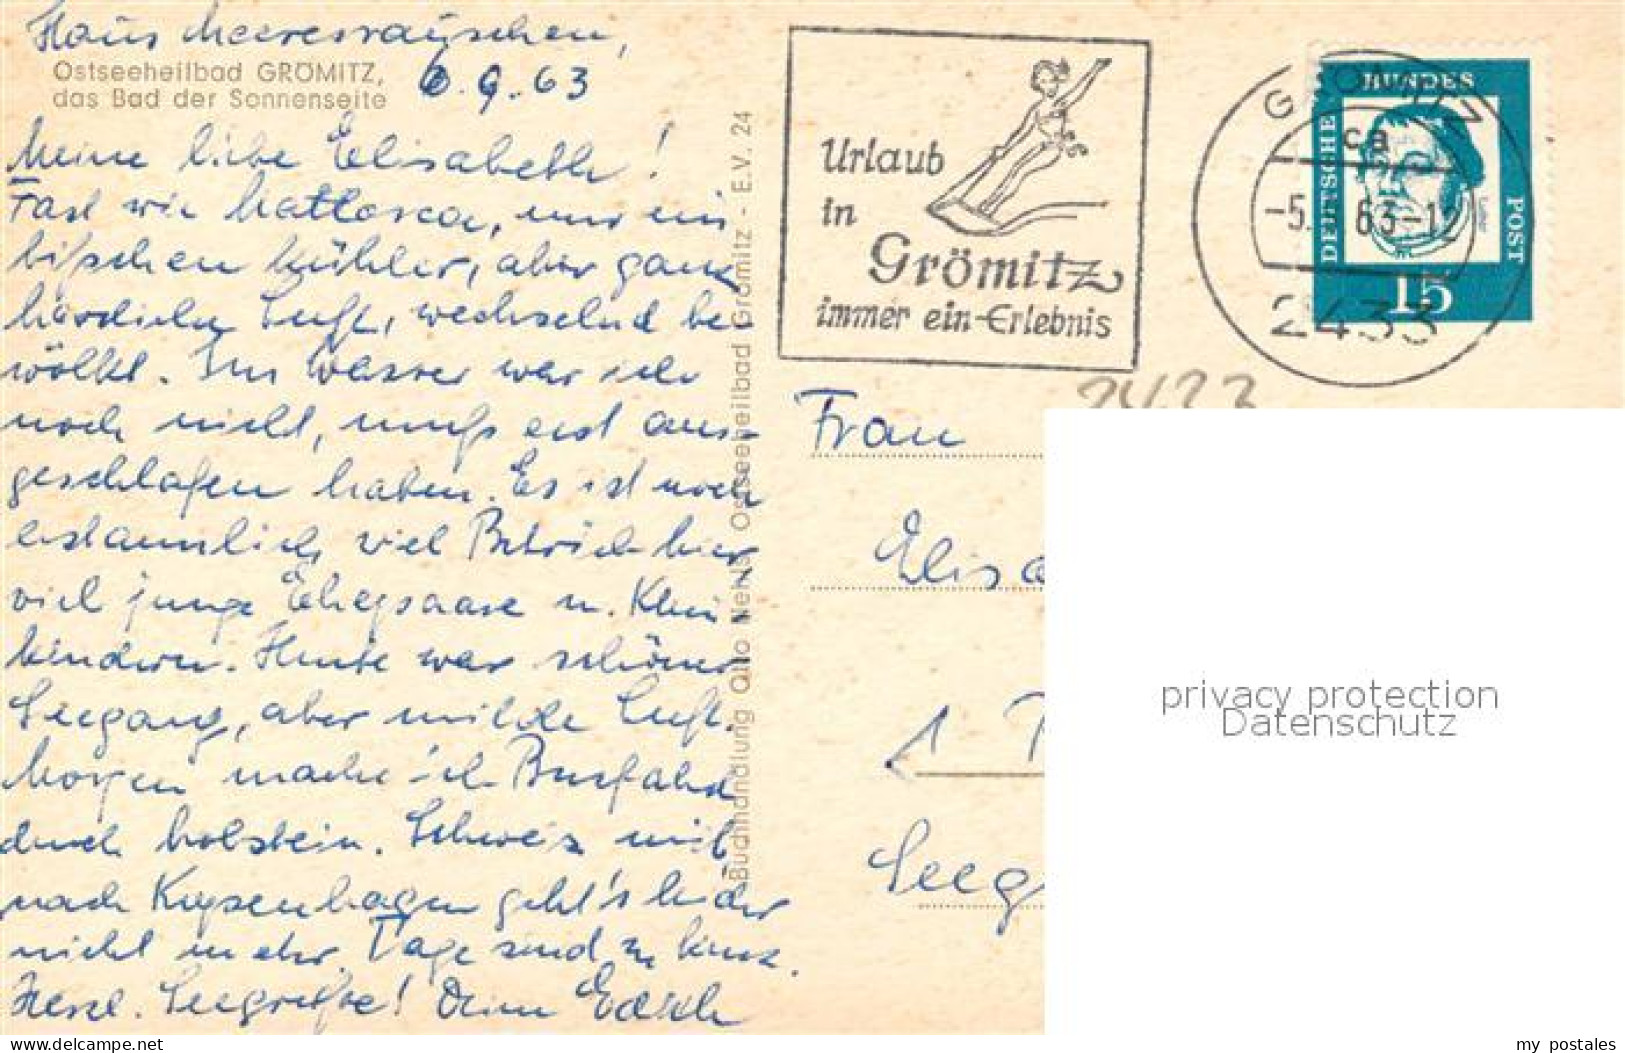 Haus Meeresrauschen,
Ostseeheilbad GRÖMITZ,
das Bad der Sonnenseite
6.9.63
Meine liebe Elisabeth!
Fast wie Mallorca, nur ein
bißchen kühler, aber ganz
herrliche Luft, wechselnd be-
wölkt. Im Wasser war ich
noch nicht, muß erst aus-
geschlafen haben. Es ist noch
erstaunlich viel Betrieb hier,
viel junge Ehepaare u. Klein-
kindern. Heute war schöner
Seegang, aber milde Luft.
Morgen mache ich Busfahrt
durch Holstein. Schweiz mit,
nach Kopenhagen geht's leider
nicht mehr. Tage sind zu kurz.
Herzl. Seegrüße! Deine Edith
Buchhandlung Otto Nens Ostseeheilbad Grömitz - E.V. 24
Urlaub
in
Grömitz
immer ein Erlebnis
GRÖMITZ
ca
-5. 63-12
2433
DEUTSCHE
BUNDES
POST
Luther
15
2433
Frau
Elisa
1
Seeg
privacy protection
Datenschutz
delcampe.net
my postales